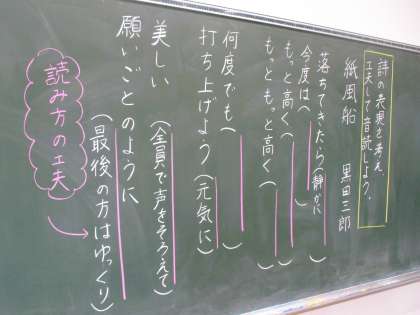 詩の表現を考え、
工夫して音読しよう。
紙風船 黒田三郎
落ちてきたら(静かに)
今度は( )
もっと高く( )
もっともっと高く( )
何度でも( )
打ち上げよう(元気に)
美しい(全員で声をそろえて)
願いごとのように
(最後の方はゆっくり)
読み方の工夫